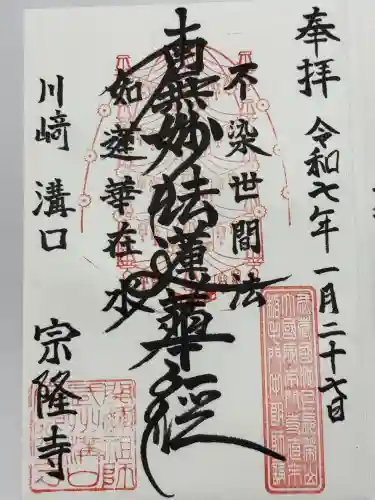 奉拝
令和七年一月二十七日
不染世間法
南無妙法蓮華経
如蓮華在水
川崎 溝口
宗隆寺